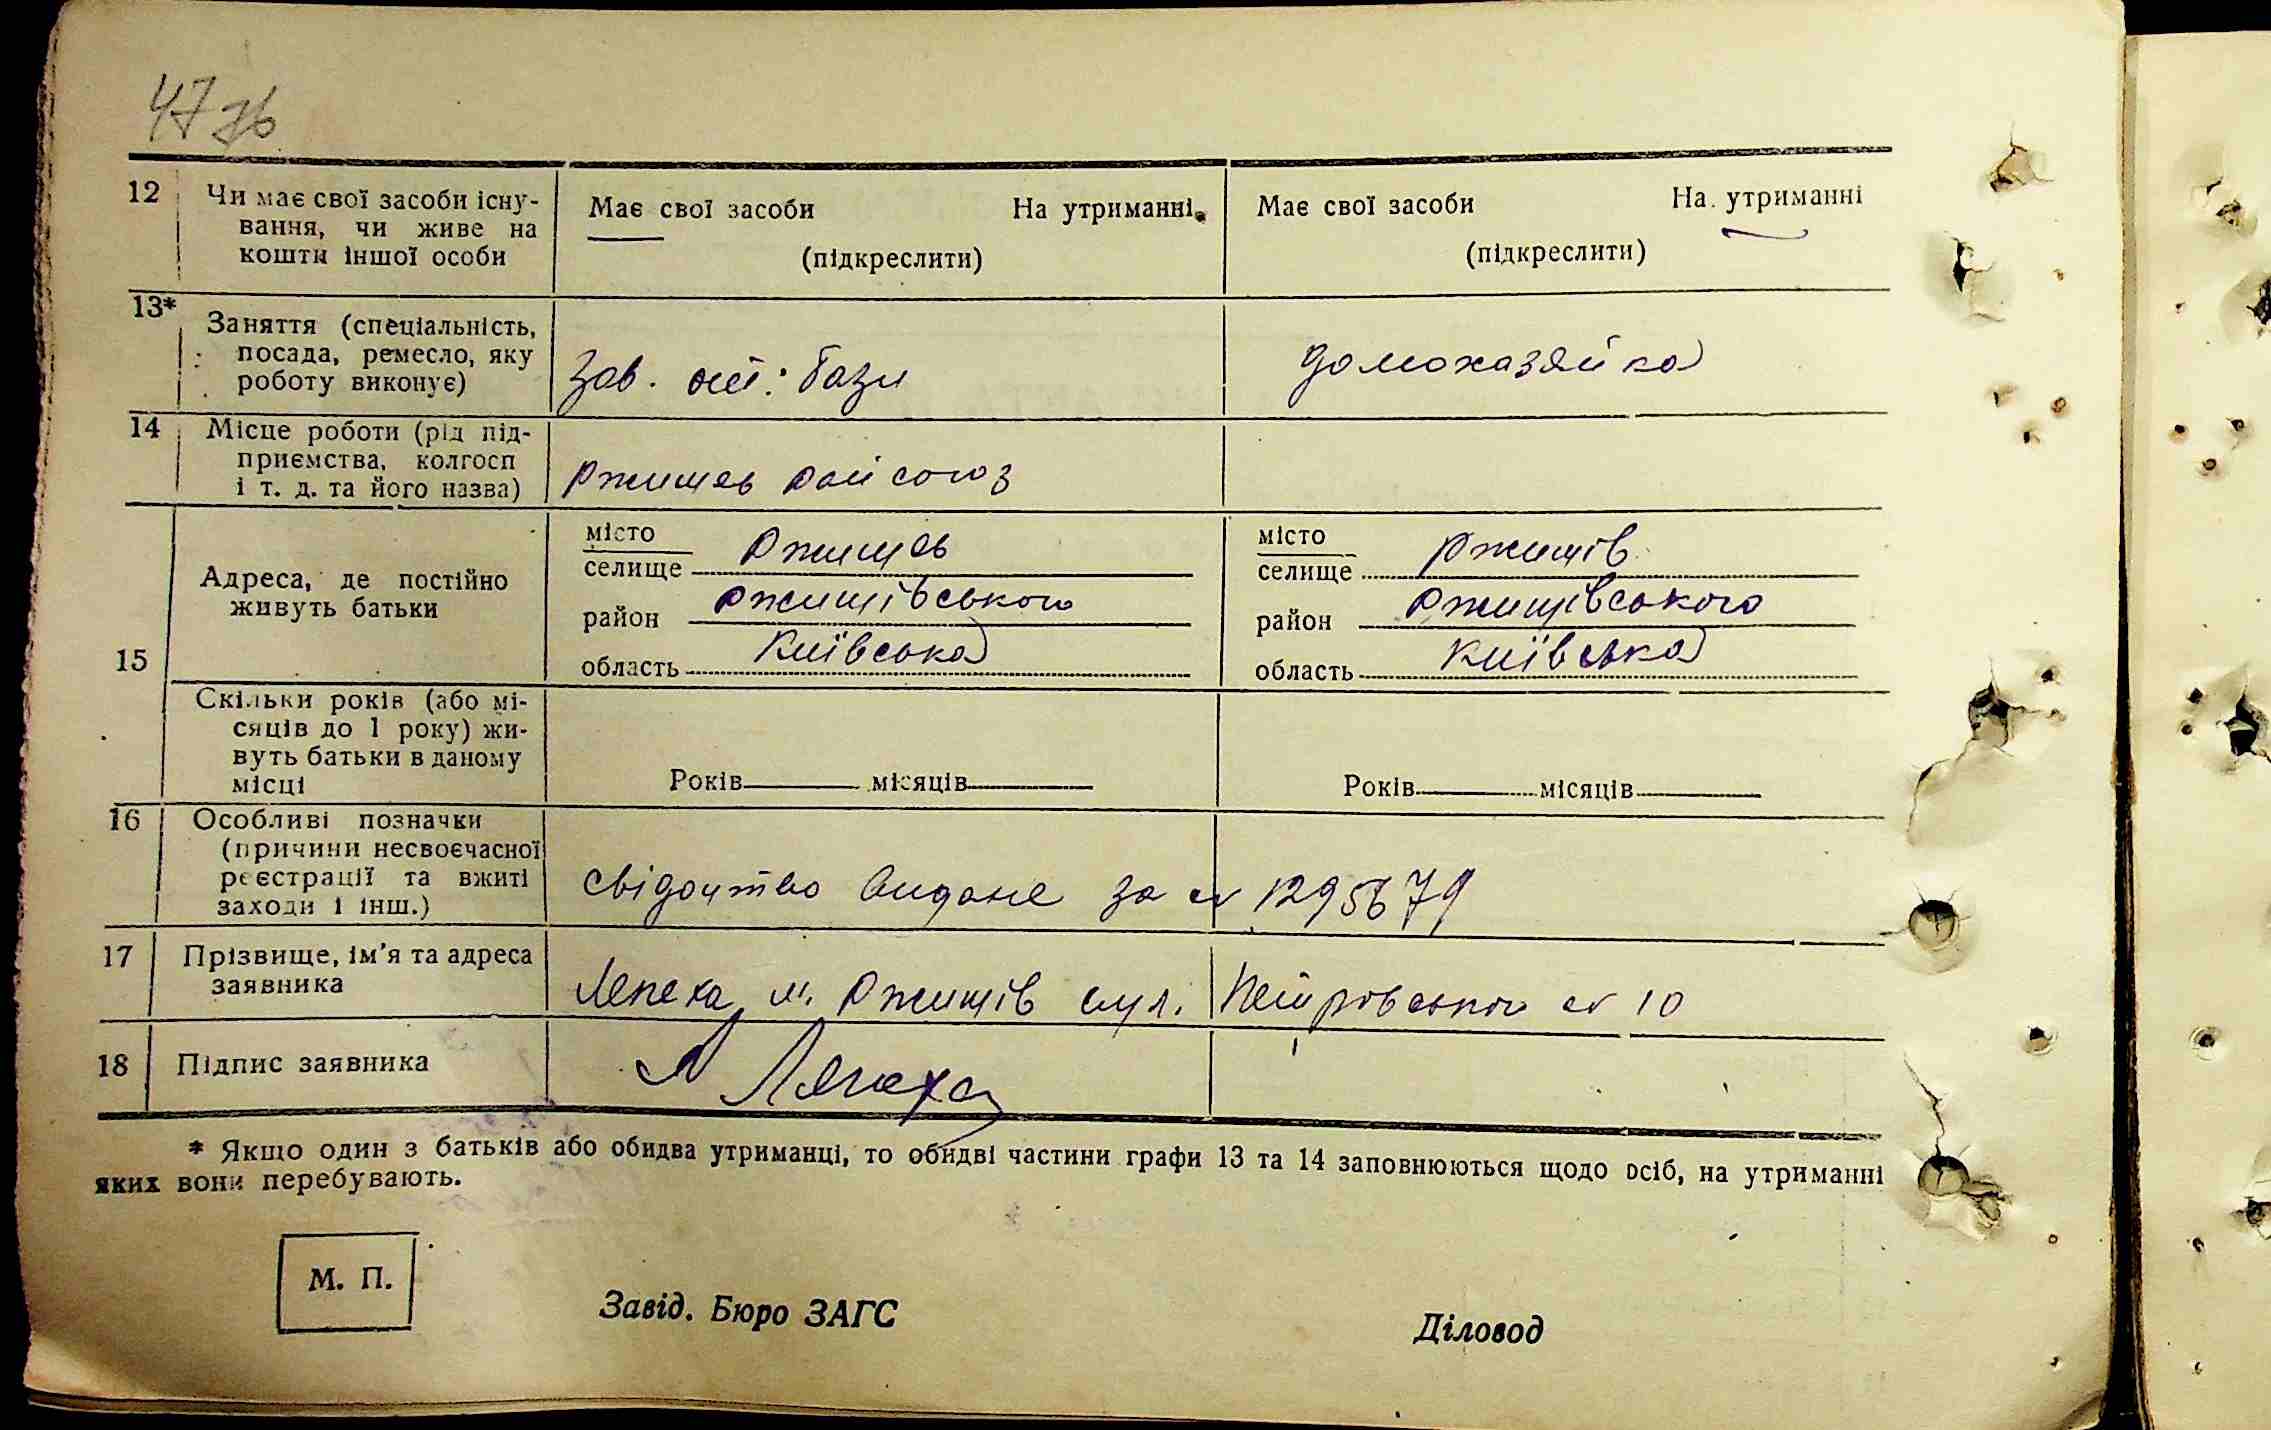 47 зв
12 Чи має свої засоби існу-
вання, чи живе на
кошти іншої особи
Має свої засоби На утриманні
(підкреслити)
Має свої засоби На утриманні
(підкреслити)
13* Заняття (спеціальність,
посада, ремесло, яку
роботу виконує)
Зав. бази
домохазяйка
14 Місце роботи (рід під-
приємства, колгосп
і т. д. та його назва)
Ржищев райсоюз
15 Адреса, де постійно
живуть батьки
місто
селище Ржищев
район Ржищівського
область Київська
місто
селище Ржищів
район Ржищівського
область Київська
Скільки років (або мі-
сяців до 1 року) жи-
вуть батьки в даному
місці
Років місяців
Років місяців
16 Особливі позначки
(причини несвоєчасної
реєстрації та вжиті
заходи і інш.)
Свідоцтво видане за №
17 Прізвище, ім'я та адреса
заявника
м. Ржищів вул. Петровського № 10
18 Підпис заявника
* Якщо один з батьків або обидва утриманці, то обидві частини графи 13 та 14 заповнюються щодо осіб, на утриманні
яких вони перебувають.
М. П.
Завід. Бюро ЗАГС
Діловод